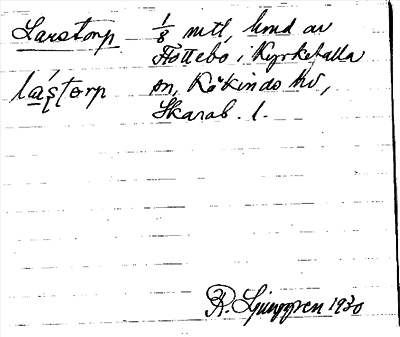 Larstorp 1/8 mtl, lmd av
Flottebo i Kyrkefalla
lás̨torp sn, Kåkinds hd,
Skarab. l.
R. Ljunggren 1930